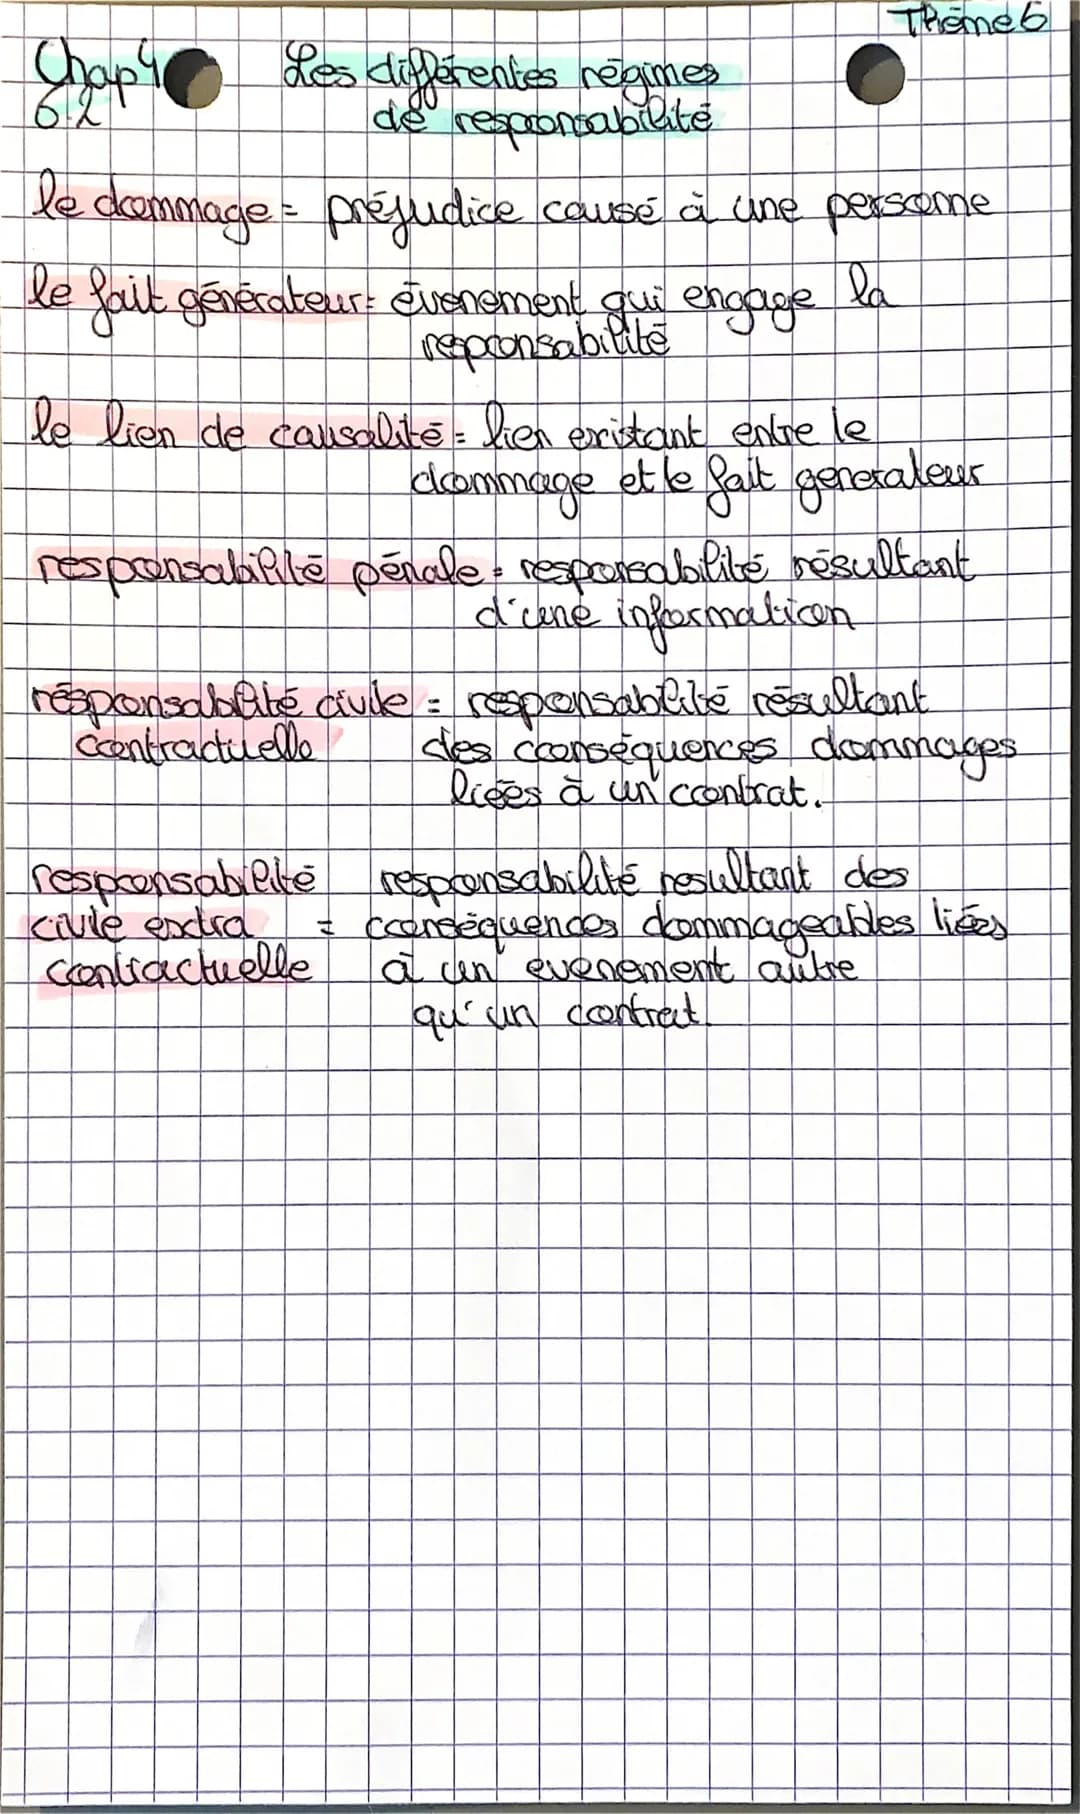 Thème 6
Chap 4 Les différentes régimes
6.2 de responsabilité
le dommage = préjudice causé à une personne
le fait générateur = évenement qui engage la
responsabilité
le lien de causalité = lien existant entre le
dommage et le fait generateur
responsabilité pénale = responsabilité résultant
d'une information
résponsabilité civile = responsabilité résultant
contractuelle des conséquences dommages
liées à un contrat.
responsabilité responsabilité resultant des
civile extra = conséquences dommageables liées
contractuelle à un evenement autre
qu'un contrat.